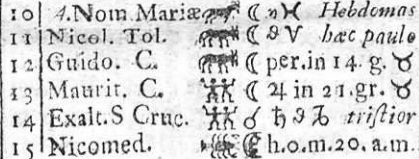 10 4. Nom. Mariæ ☾ ♓ Hebdomas
11 Nicol. Tol. ☾ ♈ hæc paulo
12 Guido. C. ☾ per. in 14. g. ♉
13 Maurit. C. ☾ ♃ in 21. gr. ♉
14 Exalt. S Cruc. ♂ ♄ tristior
15 Nicomed. ☾ h.o.m.20. a.m.